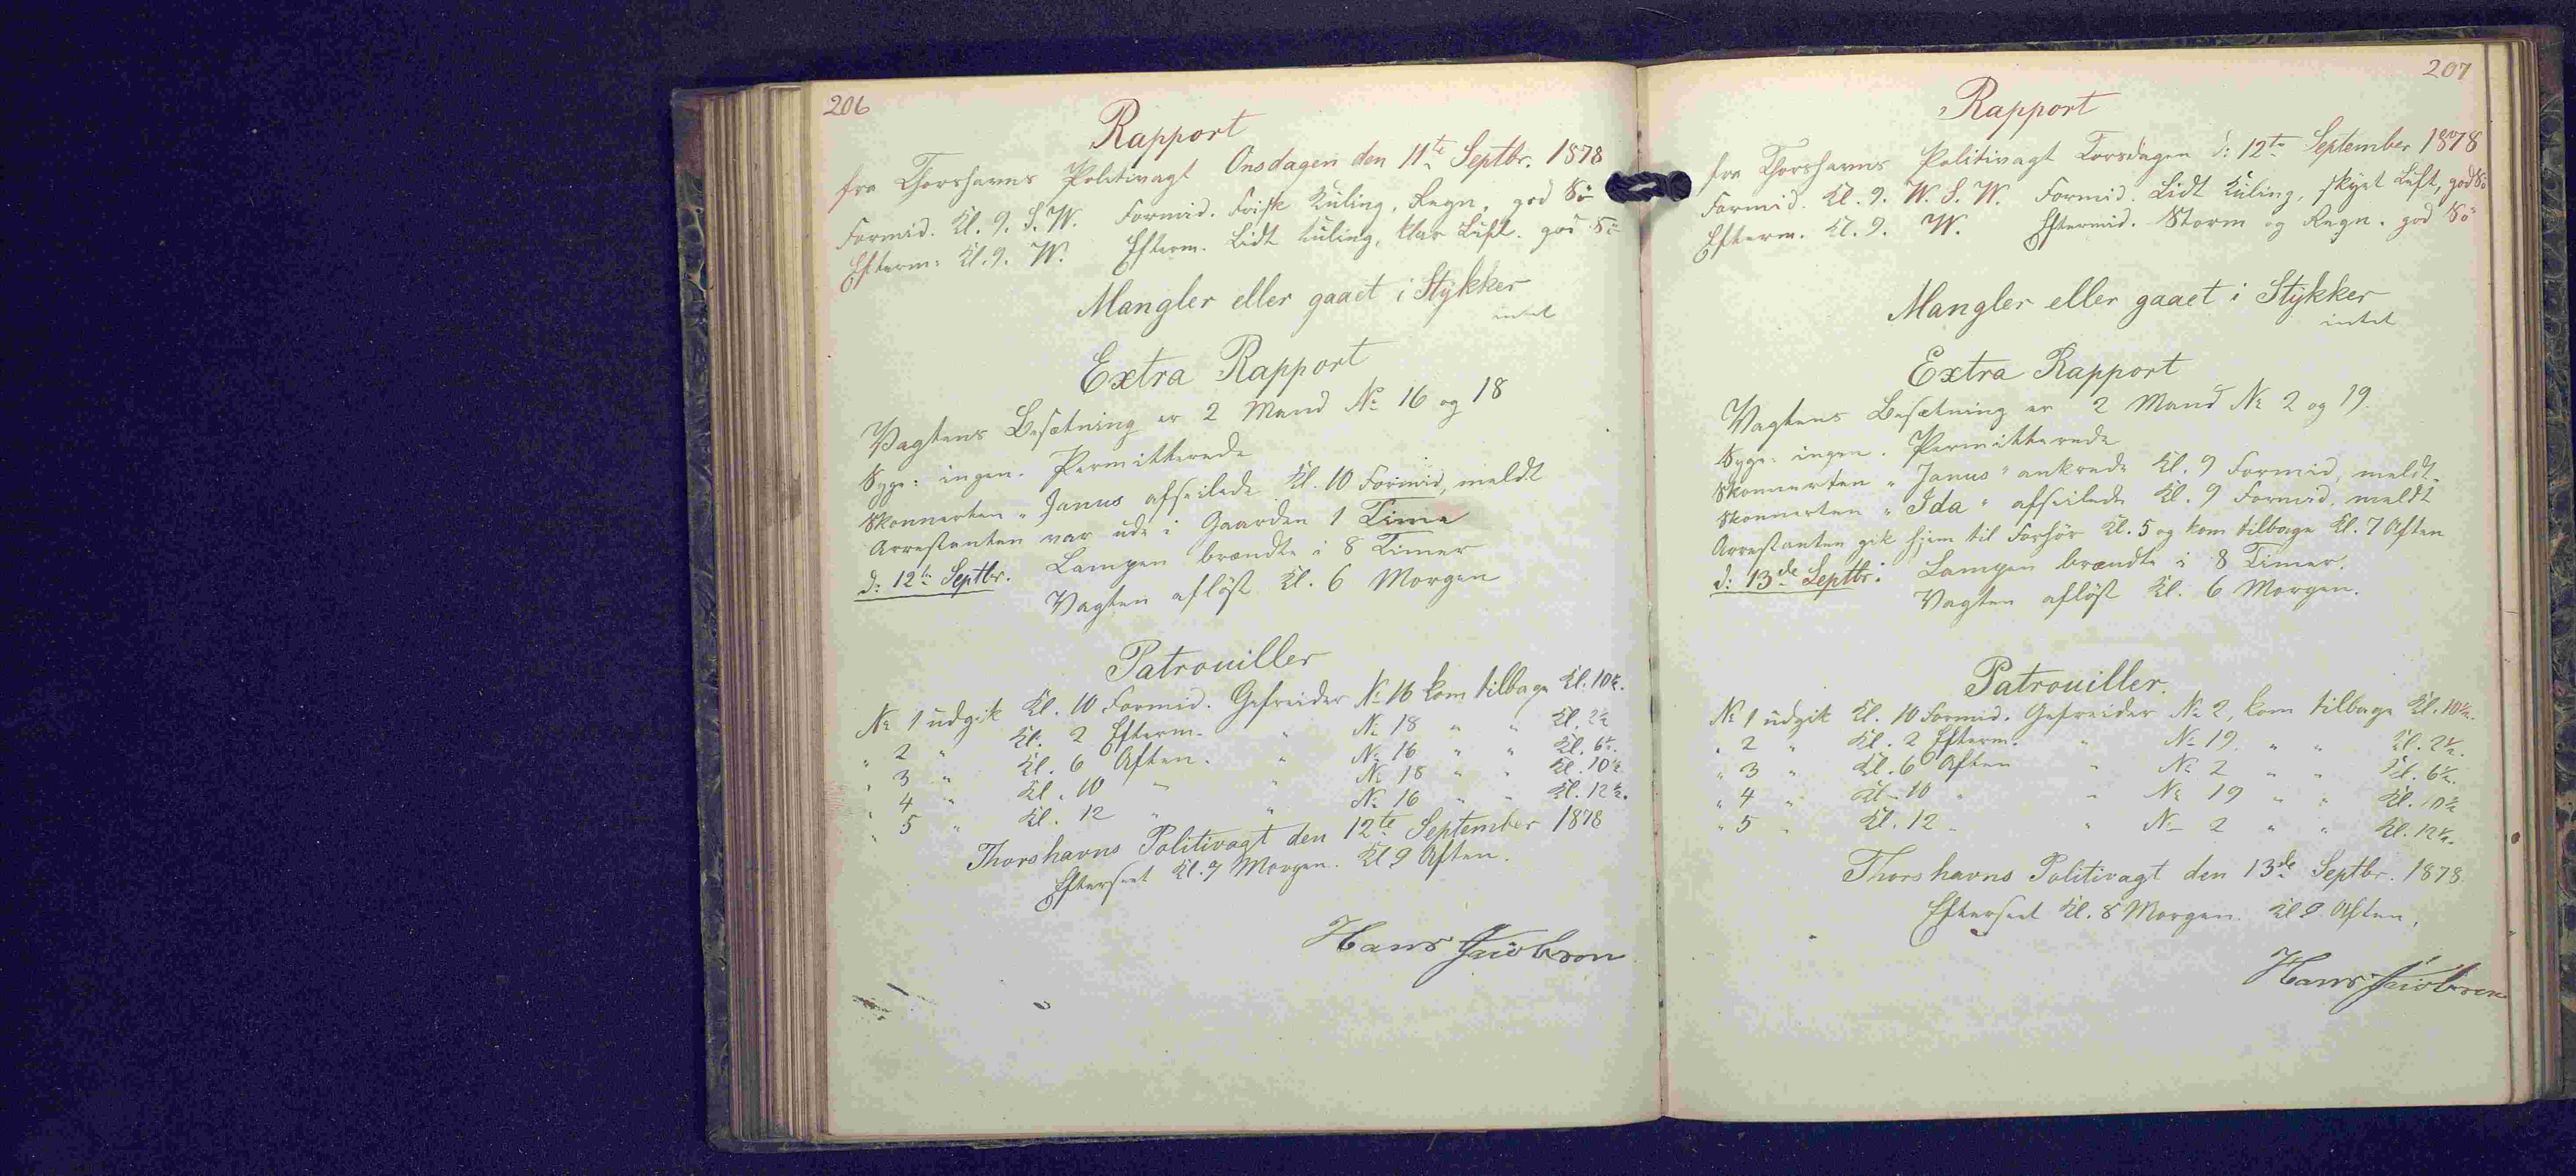 206
Rapport
fra Thorshavns Politivagt Onsdagen den 11te Septbr. 1878
Formid. Kl. 9. S. W. Formid. Frisk Kuling, Regn, god Sö
Efterm: Kl. 9. W. Efterm. Lidt Kuling, klar Luft. god Sö
Mangler eller gaaet i Stykker
intet
Extra Rapport
Vagtens Besætning er 2 Mand No 16 og 18
Syge: ingen. Permitterede
Skonnerten "Janus afseilede Kl. 10 Formid, meldt
Arrestanten var ude i Gaarden 1 Time
d: 12te Septbr. Lampen brændte i 8 Timer
Vagten aflöst Kl. 6 Morgen
Patrouiller
No 1 udgik Kl. 10 Formid. Gefreider No 16 kom tilbage Kl. 10½.
" 2 " Kl. 2 Efterm. " No 18 " " Kl. 2½
" 3 " Kl. 6 Aften. " No 16 " " Kl. 6½.
" 4 " Kl. 10 " " No 18 " " Kl. 10½
" 5 " Kl. 12 " " No 16 " " Kl. 12½.
Thorshavns Politivagt den 12te September 1878
Efterseet Kl. 7 Morgen. Kl 9 Aften.
Hans Jacobson
207
Rapport
fra Thorshavns Politivagt Torsdagen d: 12te September 1878
Formid. Kl. 9. W. S. W. Formid. Lidt Kuling, skyet Luft, god Sö
Efterm. Kl. 9. W. Eftermid. Storm og Regn. god Sö
Mangler eller gaaet i Stykker
intet
Extra Rapport
Vagtens Besætning er 2 Mand No 2 og 19.
Syge: ingen. Permitterede
Skonnerten "Janus" ankrede Kl. 9 Formid, meldt.
Skonnerten "Ida" afseilede Kl. 9 Formid. meldt
Arrestanten gik hjem til Forhör Kl. 5 og kom tilbage Kl. 7 Aften
d: 13de Septbr: Lampen brændte i 8 Timer.
Vagten aflöst Kl. 6 Morgen.
Patrouiller.
No 1 udgik Kl. 10 Formid. Gefreider No 2, kom tilbage Kl. 10½.
" 2 " Kl. 2 Efterm. " No 19. " " Kl. 2½.
" 3 " Kl. 6 Aften " No 2 " " Kl. 6½.
" 4 " Kl. 10 " " No 19 " " Kl. 10½
" 5 " Kl. 12 " " No 2 " " Kl. 12½.
Thorshavns Politivagt den 13de Septbr. 1878.
Efterseet Kl. 8 Morgen. Kl 9 Aften.
Hans Jacobson